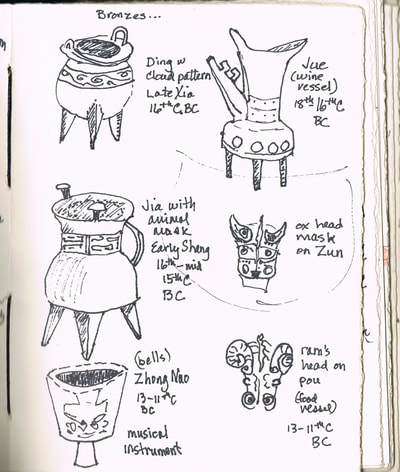 Bronzes...
Ding w
cloud pattern
Late Xia
16th C. BC
Jue
(wine
vessel)
18th/16th C
BC
Jia with
animal
mask
Early Shang
16th - mid
15th C
BC
ox head
mask
on Zun
(bells)
Zhong Nao
13-11th C
BC
musical
instrument
ram's
head on
pou
(food
vessel)
13-11th C
BC